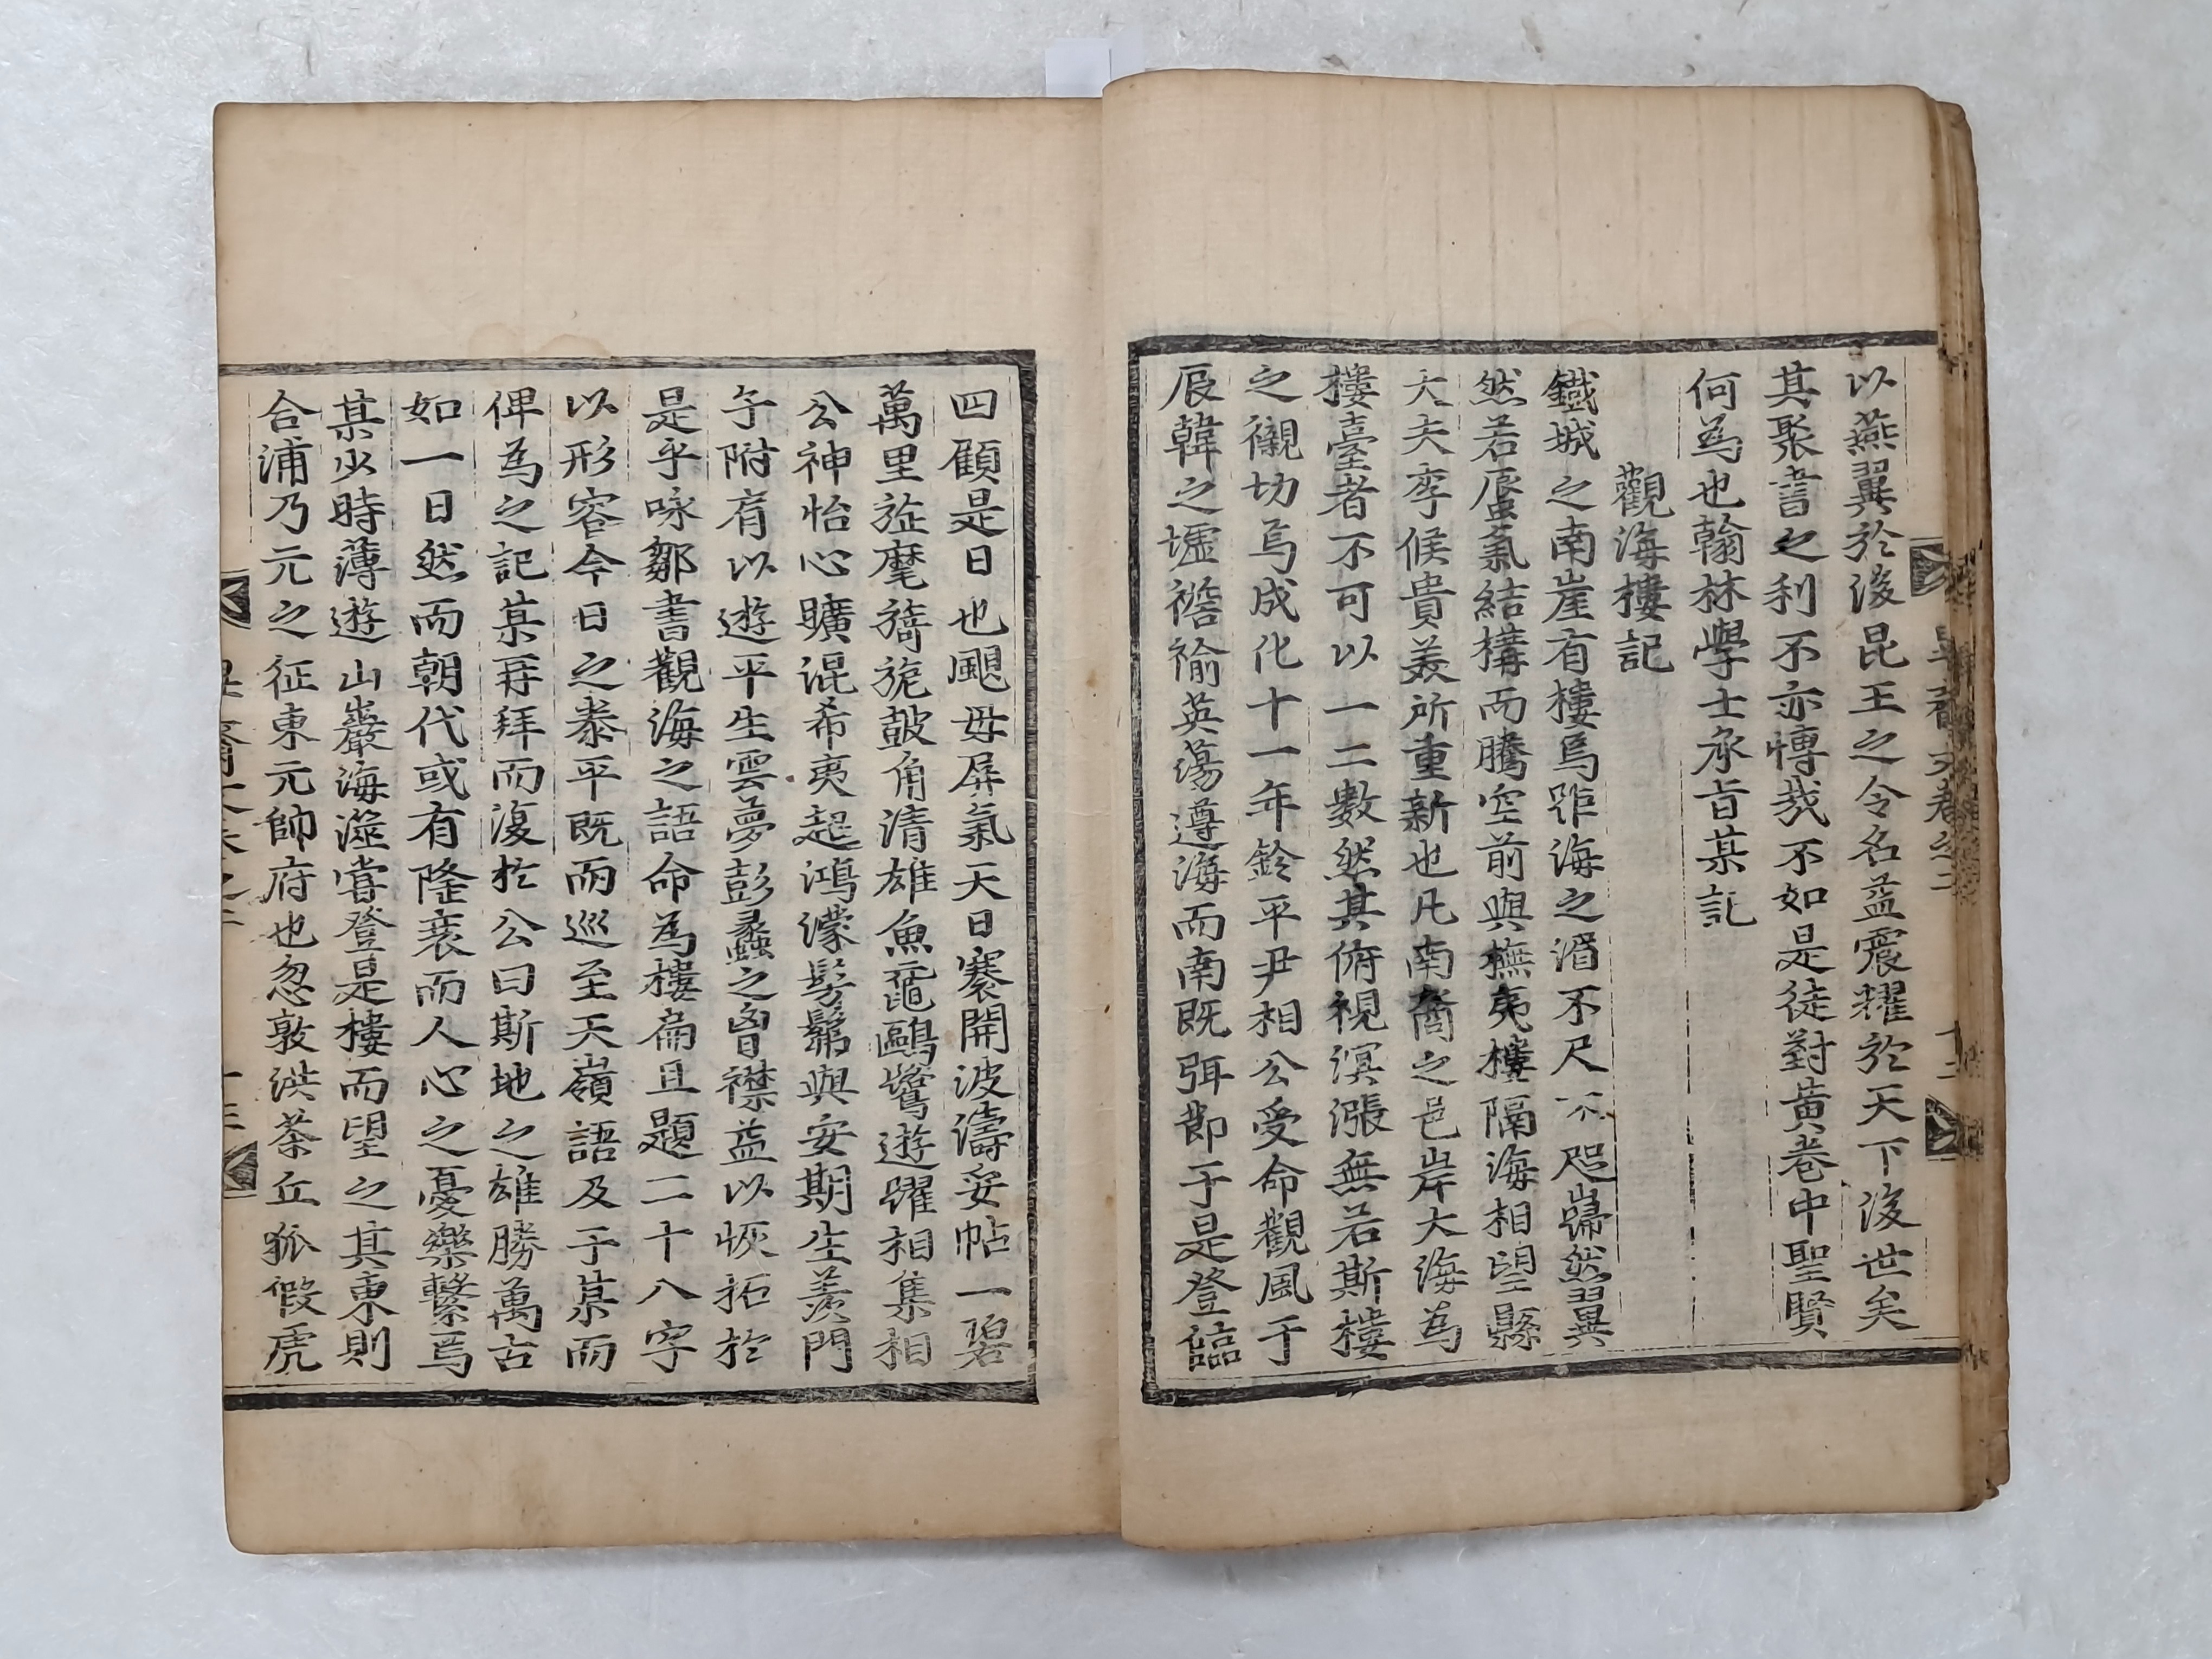 以燕翼於後昆王之令名益震耀於天下後世矣
其聚書之利不亦博哉不如是徒對黃卷中聖賢
何為也翰林學士承旨某記
觀海樓記
鐵城之南崖有樓焉距海之漘不尺不咫巋然翼
然若蜃氣結構而騰空前與撫夷樓隔海相望縣
大夫李侯貴美所重新也凡南裔之邑岸大海為
樓臺者不可以一二數然其俯視溟漲無若斯樓
之襯切焉成化十一年鈴平尹相公受命觀風于
辰韓之墟襜褕英蕩遵海而南既弭節于是登臨
四顧是日也颶母屛氣天日褰開波濤妥帖一碧
萬里旌麾旖旎鼓角清雄魚黿鷗鷺遊躍相集相
公神怡心曠混希夷起鴻濛髣髴與安期生羨門
子附肓以遊平生雲夢彭蠡之胷襟益以恢拓於
是乎咏鄒書觀海之語命為樓扁且題二十八字
以形容今日之泰平既而巡至天嶺語及于某而
俾為之記某再拜而復於公曰斯地之雄勝萬古
如一日然而朝代或有隆衰而人心之憂樂繫焉
某少時薄遊山巖海澨嘗登是樓而望之其東則
合浦乃元之征東元帥府也忽敦洪茶丘狐假虎